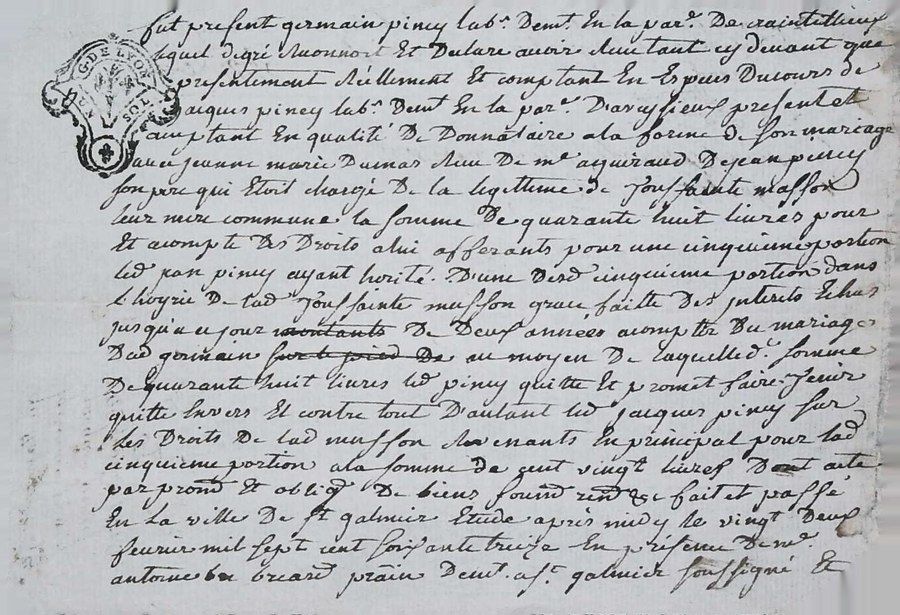 G. DE LYON
SOLS
fut present germain piney lab.r Dem.t En la par.e De craintillieux
lequel degré Reconnoit Et Declare avoir Reeu tant cy devant que
presentement Réellement Et comptant En Especes Ducours de
jacques piney lab.r Dem.t En la par.e Daveysieux present et
acceptant En qualité De Donnataire a la forme de Son mariage
avec jeanne marie Dumas Reeu De m.e ayguiraud De jean piney
son pere qui Etoit chargé De la legettime de Toussainte masson
leur mere commune la somme De quarante huit livres pour
Et acompte Des Droits a lui afferants pour une cinquieme portion
led jean piney ayant herité D'une Desd cinquieme portion dans
L'hoyrie De lad Toussainte masson grace faitte Des Interets Echus
jusqu'a ce jour montants De Deux années acompter Du mariage
Dud germain sur le pied De au moyen De laquelled.e somme
De quarante huit livres led piney quitte Et promet faire Tenir
quitte Envers Et contre tout D'autant led jacques piney sur
Les Droits De lad masson Revenants En principal pour lad
cinquieme portion a la somme de cent vingt livres Dont acte
par promd Et obligd De biens soumd rend &c fait et passé
En La ville De St galmier Etude après midy le vingt Deux
fevrier mil sept cent soixante treize En présence De m.e
antoine breard prain Dem.t a St galmier soussigné Et